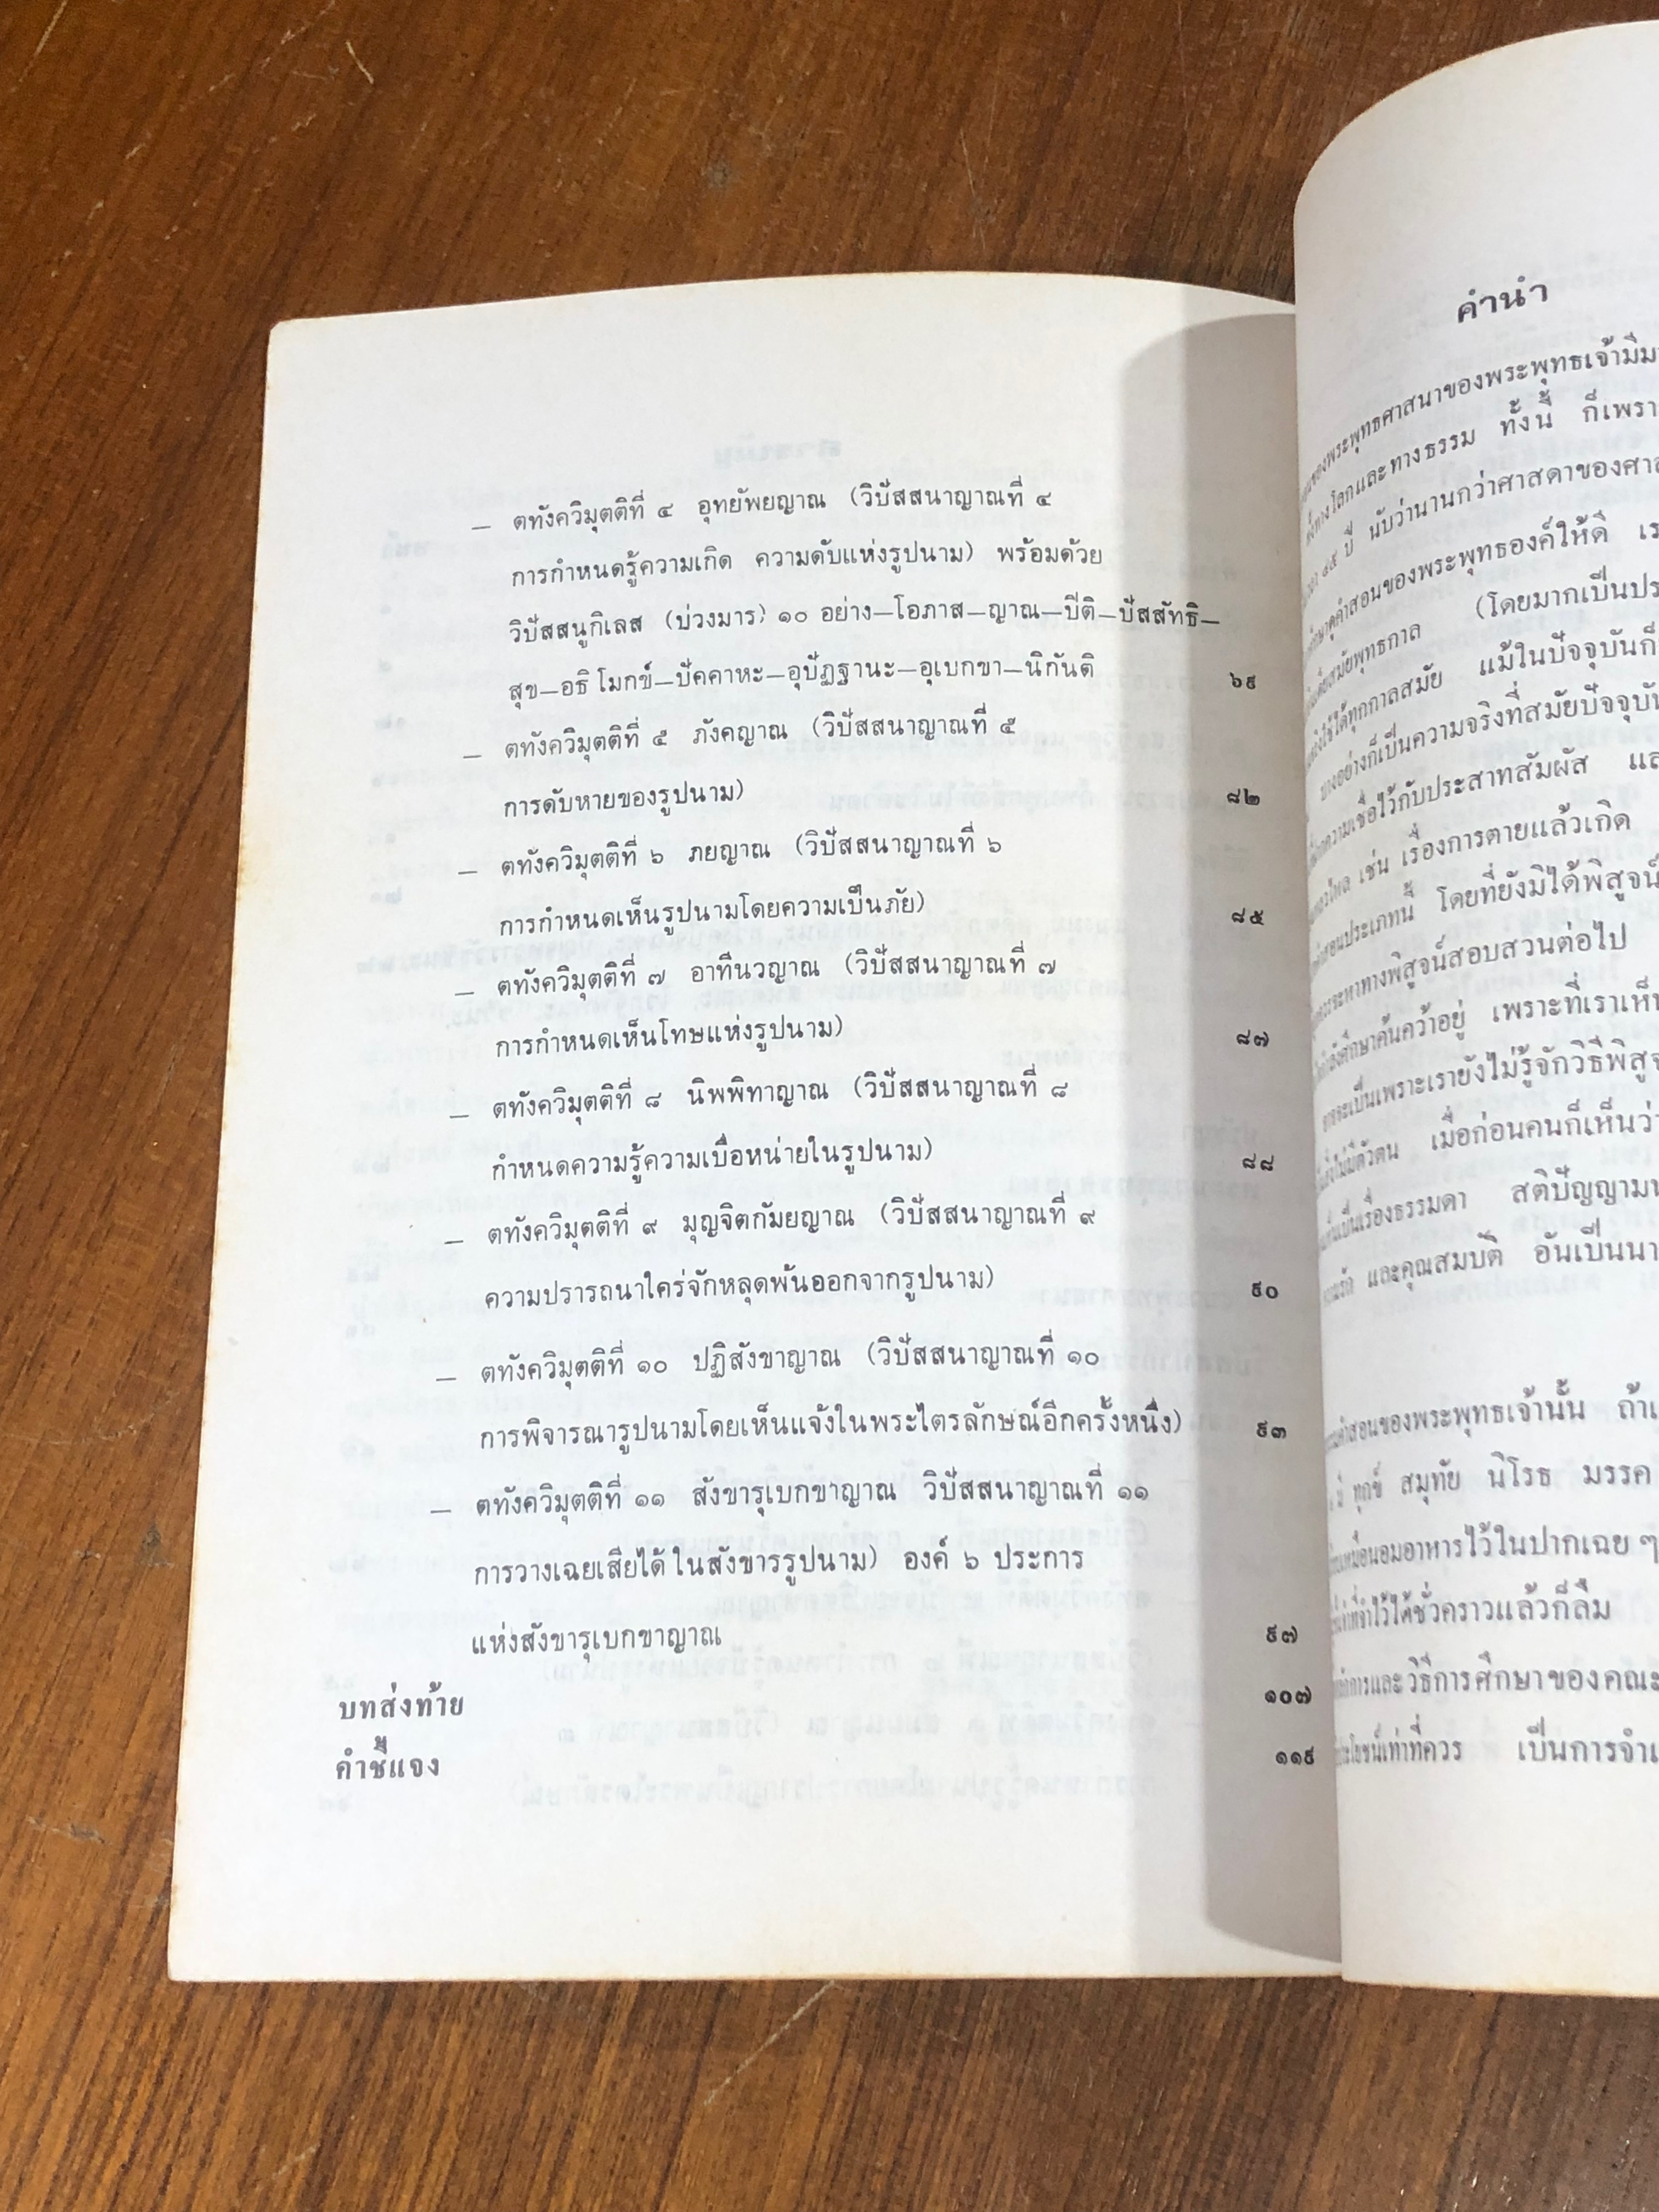 — ตทังควิมุตติที่ ๔ อุทยัพยญาณ (วิปัสสนาญาณที่ ๔
การกำหนดรู้ความเกิด ความดับแห่งรูปนาม) พร้อมด้วย
วิปัสสนูกิเลส (บ่วงมาร) ๑๐ อย่าง—โอภาส—ญาณ—ปีติ—ปัสสัทธิ—
สุข—อธิโมกข์—ปัคคาหะ—อุปัฏฐานะ—อุเบกขา—นิกันติ ๖๙
— ตทังควิมุตติที่ ๕ ภังคญาณ (วิปัสสนาญาณที่ ๕
การดับหายของรูปนาม) ๘๒
— ตทังควิมุตติที่ ๖ ภยญาณ (วิปัสสนาญาณที่ ๖
การกำหนดเห็นรูปนามโดยความเป็นภัย) ๘๕
— ตทังควิมุตติที่ ๗ อาทีนวญาณ (วิปัสสนาญาณที่ ๗
การกำหนดเห็นโทษแห่งรูปนาม) ๘๗
— ตทังควิมุตติที่ ๘ นิพพิทาญาณ (วิปัสสนาญาณที่ ๘
กำหนดความรู้ความเบื่อหน่ายในรูปนาม) ๘๘
— ตทังควิมุตติที่ ๙ มุญจิตกัมยญาณ (วิปัสสนาญาณที่ ๙
ความปรารถนาใคร่จักหลุดพ้นออกจากรูปนาม) ๙๐
— ตทังควิมุตติที่ ๑๐ ปฏิสังขาญาณ (วิปัสสนาญาณที่ ๑๐
การพิจารณารูปนามโดยเห็นแจ้งในพระไตรลักษณ์อีกครั้งหนึ่ง) ๙๓
— ตทังควิมุตติที่ ๑๑ สังขารุเบกขาญาณ วิปัสสนาญาณที่ ๑๑
การวางเฉยเสียได้ในสังขารรูปนาม) องค์ ๖ ประการ
แห่งสังขารุเบกขาญาณ ๙๗
บทส่งท้าย ๑๐๗
คำชี้แจง ๑๑๙
คำนำ
ของพระพุทธศาสนาของพระพุทธเจ้ามีม
ทั้งทางโลกและทางธรรม ทั้งนี้ ก็เพรา
๔๕ ปี นับว่านานกว่าศาสดาของศา
คำสอนของพระพุทธองค์ให้ดี เร
สมัยพุทธกาล (โดยมากเป็นปร
ใช้ได้ทุกกาลสมัย แม้ในปัจจุบันก็
บางอย่างก็เป็นความจริงที่สมัยปัจจุบัน
ความเชื่อไว้กับประสาทสัมผัส แล
เช่น เรื่องการตายแล้วเกิด
คำสอนประเภทนี้ โดยที่ยังมิได้พิสูจน์
ควรจะหาทางพิสูจน์สอบสวนต่อไป
กำลังศึกษาค้นคว้าอยู่ เพราะที่เราเห็น
อาจจะเป็นเพราะเรายังไม่รู้จักวิธีพิสูจ
ไม่มีตัวตน เมื่อก่อนคนก็เห็นว่า
เป็นเรื่องธรรมดา สติปัญญามน
และคุณสมบัติ อันเป็นนา
คำสอนของพระพุทธเจ้านั้น ถ้าเ
ทุกข์ สมุทัย นิโรธ มรรค
เหมือนอมอาหารไว้ในปากเฉย ๆ
ที่จำไว้ได้ชั่วคราวแล้วก็ลืม
การและวิธีการศึกษาของคณะ
ประโยชน์เท่าที่ควร เป็นการจำเ